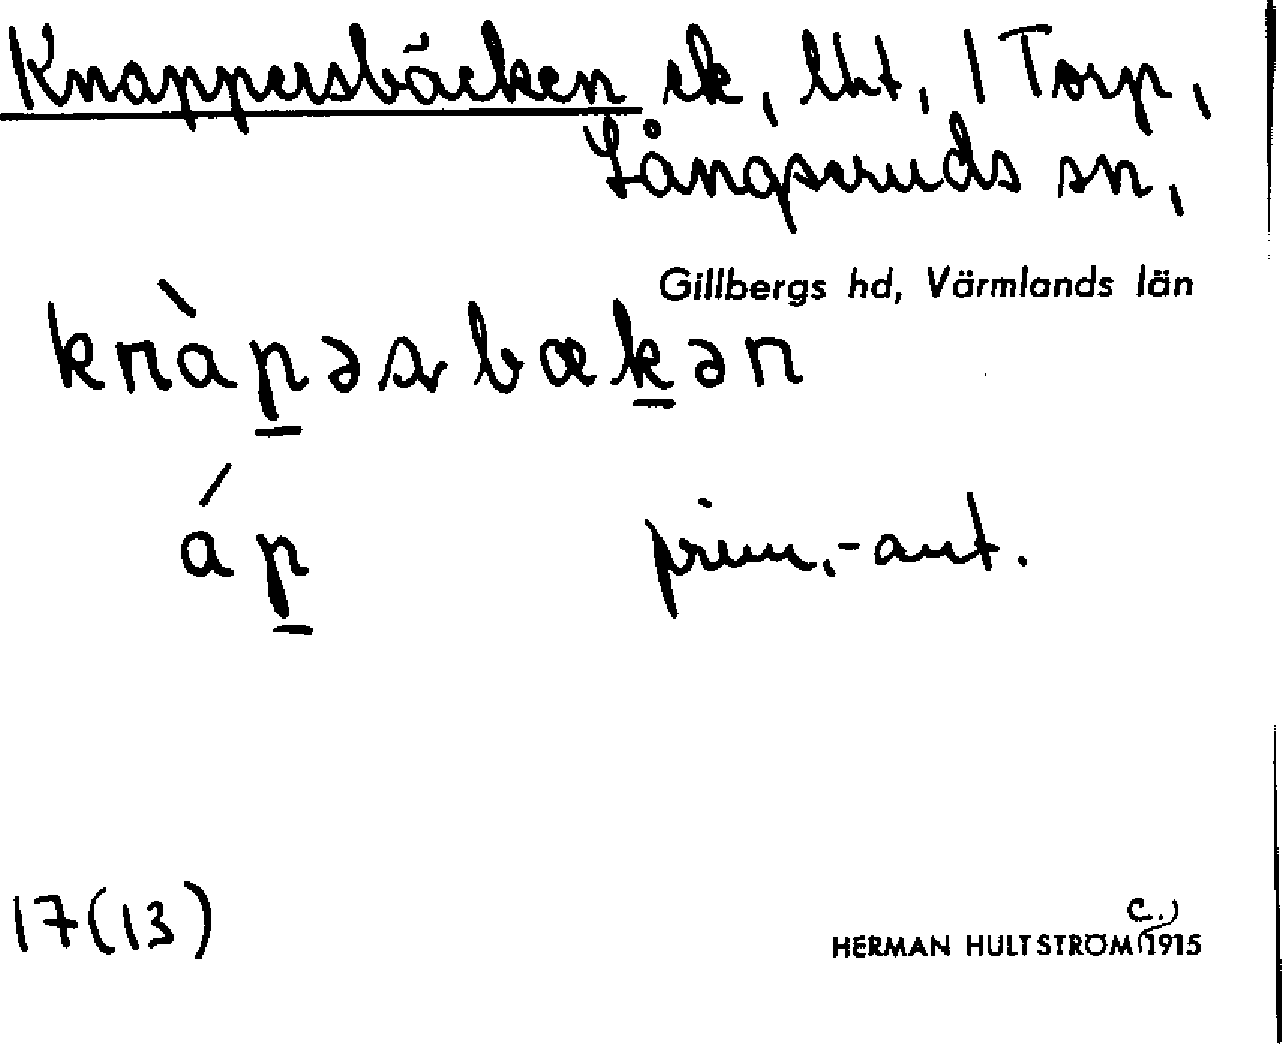 Knappersbäcken ek, lht, 1 Torp,
Långseruds sn,
Gillbergs hd, Värmlands län
knàp̲əsrbæk̲ən
áp̲ prim.-ant.
17(13)
HERMAN HULTSTRÖM c. 1915